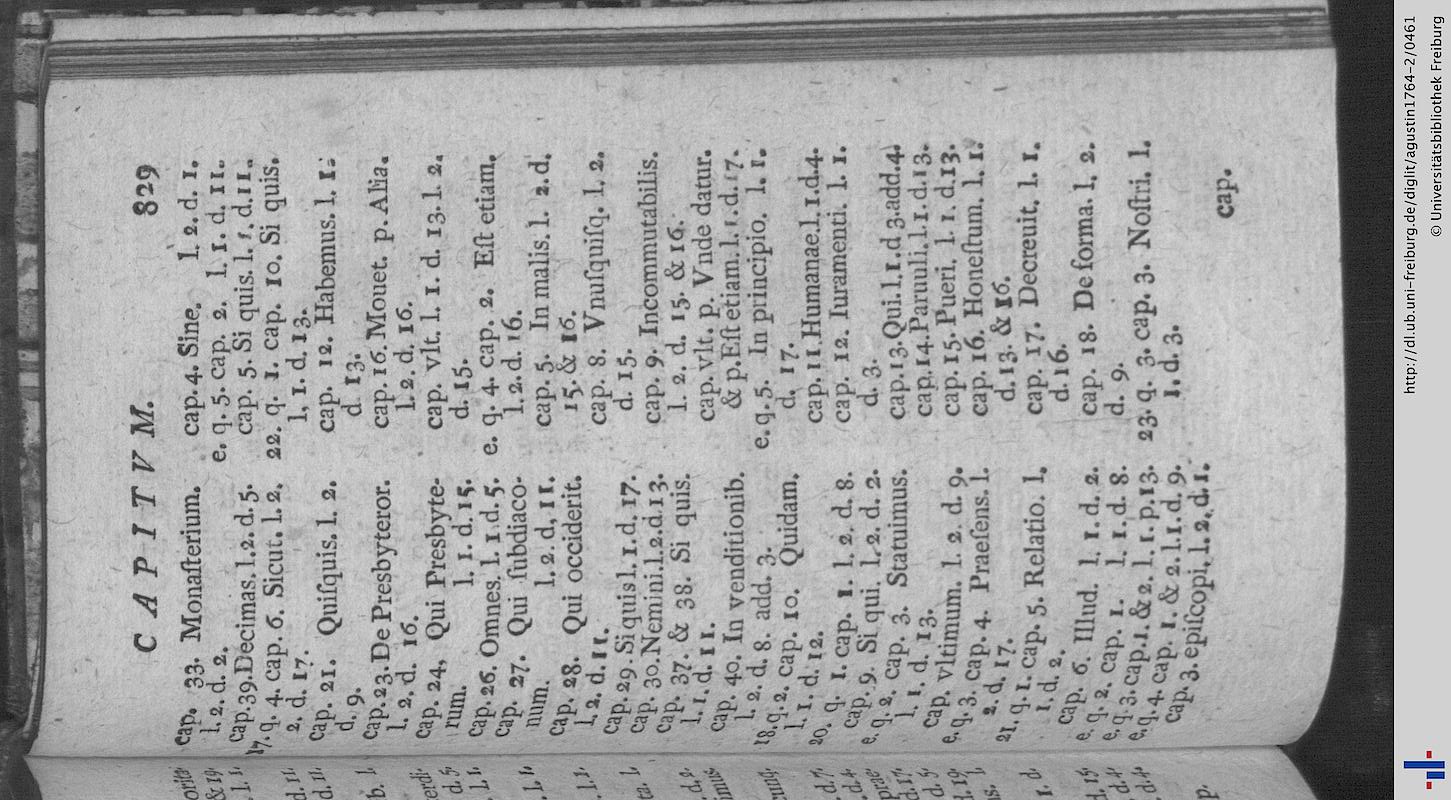 CAPITVM. 829
cap. 33. Monaſterium.
l. 2. d. 2.
cap. 39. Decimas. l. 2. d. 5.
17. q. 4. cap. 6. Sicut. l. 2.
2. d. 17.
cap. 21. Quiſquis. l. 2.
d. 9.
cap. 23. De Presbyteror.
l. 2. d. 16.
cap. 24, Qui Presbyte-
rum. l. 1. d. 15.
cap. 26. Omnes. l. 1. d. 5.
cap. 27. Qui ſubdiaco-
num. l. 2. d, 11.
cap. 28. Qui occiderit.
l. 2. d. 11.
cap. 29. Si quis l. 1. d, 17.
cap. 30. Nemini. l. 2. d. 13.
cap. 37. & 38. Si quis.
l. 1. d. 11.
cap. 40. In venditionib.
l. 2. d. 8. add. 3.
18. q. 2. cap. 10. Quidam,
l. 1. d. 12.
20. q. 1. cap. 1. l. 2. d. 8.
cap. 9. Si qui. l. 2. d. 2.
e, q. 2, cap. 3. Statuimus.
l. 1, d. 13.
cap. vltimum. l. 2. d. 9.
e, q. 3. cap. 4. Praeſens. l.
2. d. 17.
21. q. 1. cap. 5. Relatio. l,
1, d. 2.
cap. 6. Illud. l. 1. d. 2.
e, q. 2, cap. 1. l. 1. d. 8.
e, q. 3. cap. 1. & 2. l. 1. p. 13.
e, q. 4. cap. 1. & 2. l. 1. d. 9.
cap. 3. epiſcopi, l. 2. d. 1.
cap. 4. Sine, l. 2. d. 1.
e. q. 5. cap. 2. l. 1. d. 11.
cap. 5. Si quis. l. 1. d. 11.
22. q. 1. cap. 10. Si quis.
l, 1. d. 13.
cap. 12. Habemus. l. 1.
d. 13.
cap. 16. Mouet. p. Alia.
l. 2. d. 16.
cap. vlt. l. 1. d. 13. l. 2.
d. 15.
e. q. 4. cap. 2. Eſt etiam.
l. 2. d. 16.
cap. 5. In malis. l. 2. d.
15. & 16.
cap. 8. Vnuſquiſq. l, 2.
d. 15.
cap. 9. Incommutabilis.
l. 2. d. 15. & 16.
cap. vlt. p. Vnde datur.
& p. Eſt etiam. l. 1. d. 17.
e. q. 5. In principio. l. 1.
d. 17.
cap. 11. Humanae. l. 1. d. 4.
cap. 12. Iuramenti. l. 1.
d. 3.
cap. 13. Qui. l. 1. d 3. add. 4
cap. 14. Paruuli. l. 1. d. 13.
cap. 15. Pueri. l. 1. d. 13.
cap. 16. Honeſtum. l. 1.
d. 13. & 16.
cap. 17. Decreuit. l. 1.
d. 16.
cap. 18. De forma. l. 2.
d. 9.
23. q. 3. cap. 3. Noſtri. l.
1. d. 3.
cap.
http://dl.ub.uni-freiburg.de/diglit/agustin1764-2/0461
© Universitätsbibliothek Freiburg